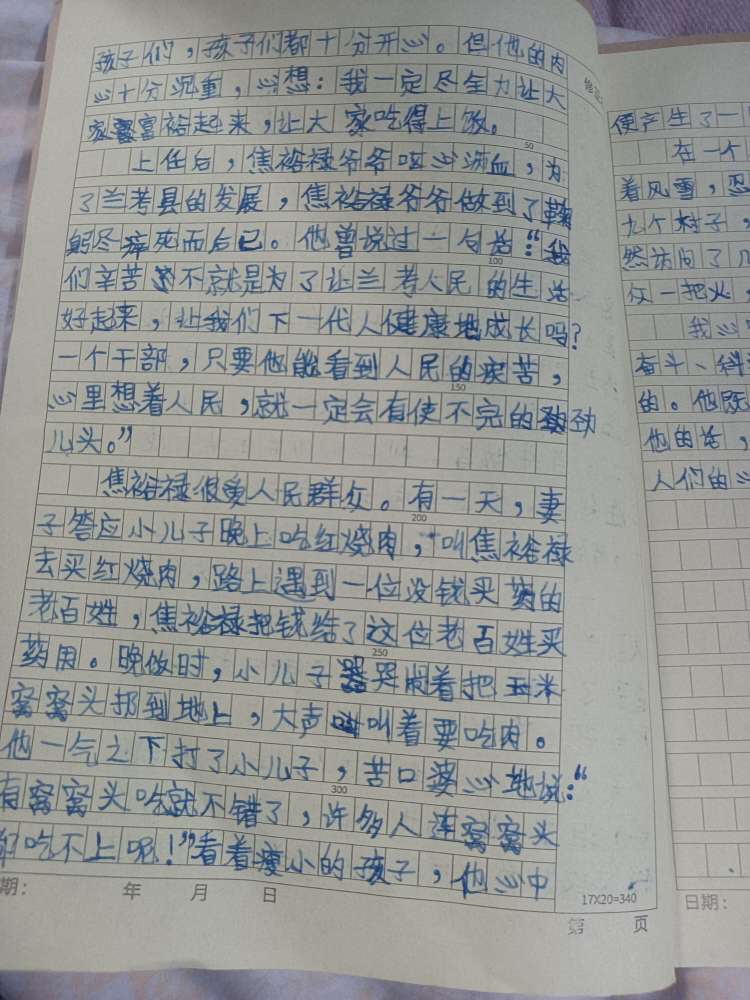 孩子们，孩子们都十分开心。但他的内
心十分沉重，心想：我一定尽全力让大
家富裕起来，让大家吃得上饭。
50
上任后，焦裕禄爷爷呕心沥血，为
了兰考县的发展，焦裕禄爷爷做到了鞠
躬尽瘁死而后已。他曾说过一句话：“我
100
们辛苦不就是为了让兰考人民的生活
好起来，让我们下一代人健康地成长吗？
一个干部，只要他能看到人民的疾苦，
150
心里想着人民，就一定会有使不完的劲
儿头。”
焦裕禄很爱人民群众。有一天，妻
200
子答应小儿子晚上吃红烧肉，叫焦裕禄
去买红烧肉，路上遇到一位没钱买药的
老百姓，焦裕禄把钱给了这位老百姓买
250
药用。晚饭时，小儿子哭闹着把玉米
窝窝头扔到地上，大声叫着要吃肉。
他一气之下打了小儿子，苦口婆心地说：“
300
有窝窝头吃就不错了，许多人连窝窝头
都吃不上呢！”看着瘦小的孩子，他心中
期： 年 月 日
17X20=340
第 页
便产生了一
在一个
着风雪，忍
九个村子，
然访问了几
仅一把火，
我心
奋斗、科
的。他既
他的话，
人们的心
日期：